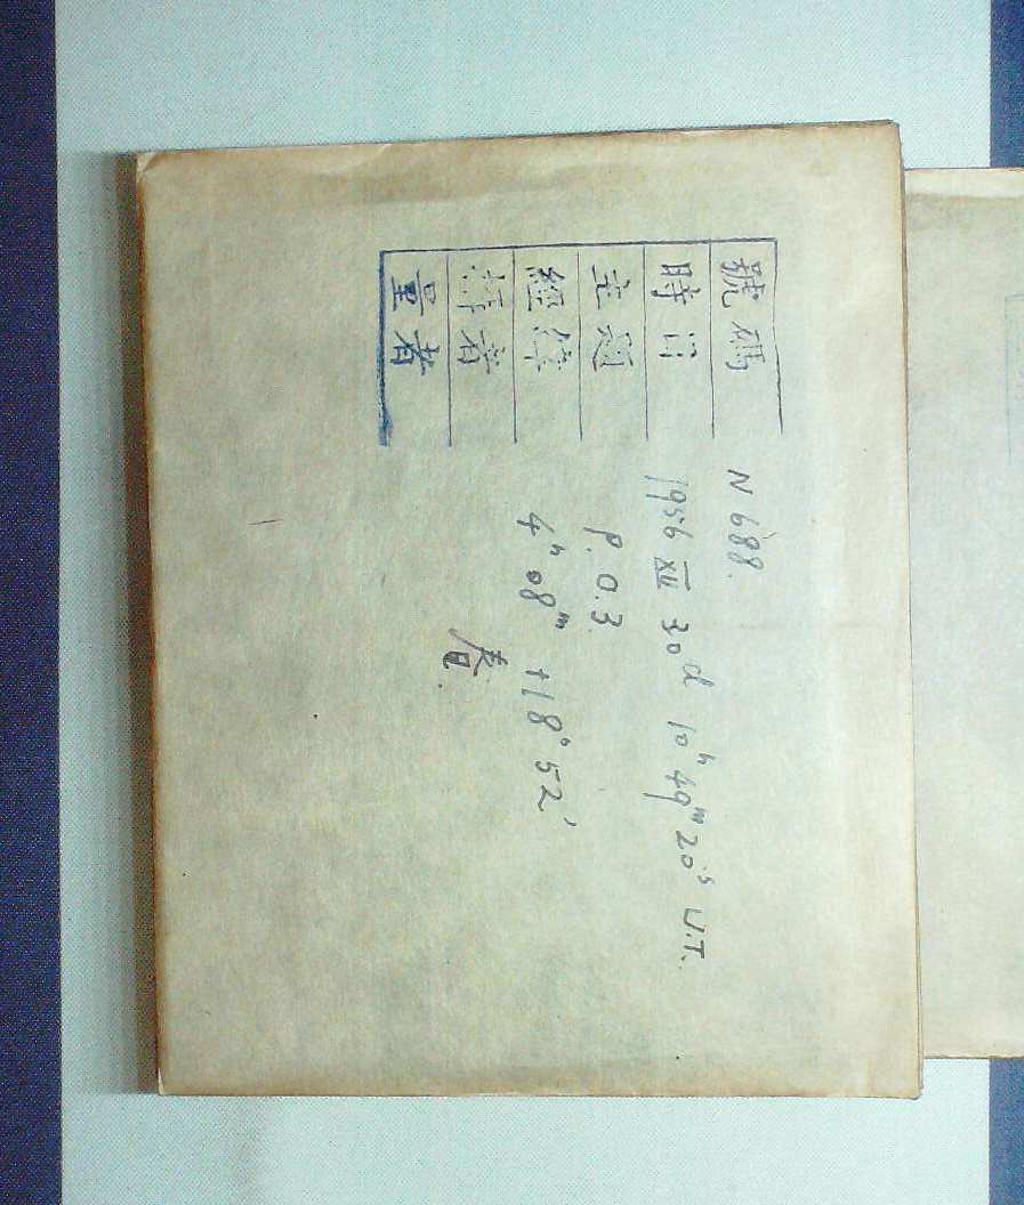 號碼 N 688.
時日 1956 XII 30d 10h 49m 20.s U.T.
主題 P. O.3.
經緯 4h 08m +18° 52'
者
量者